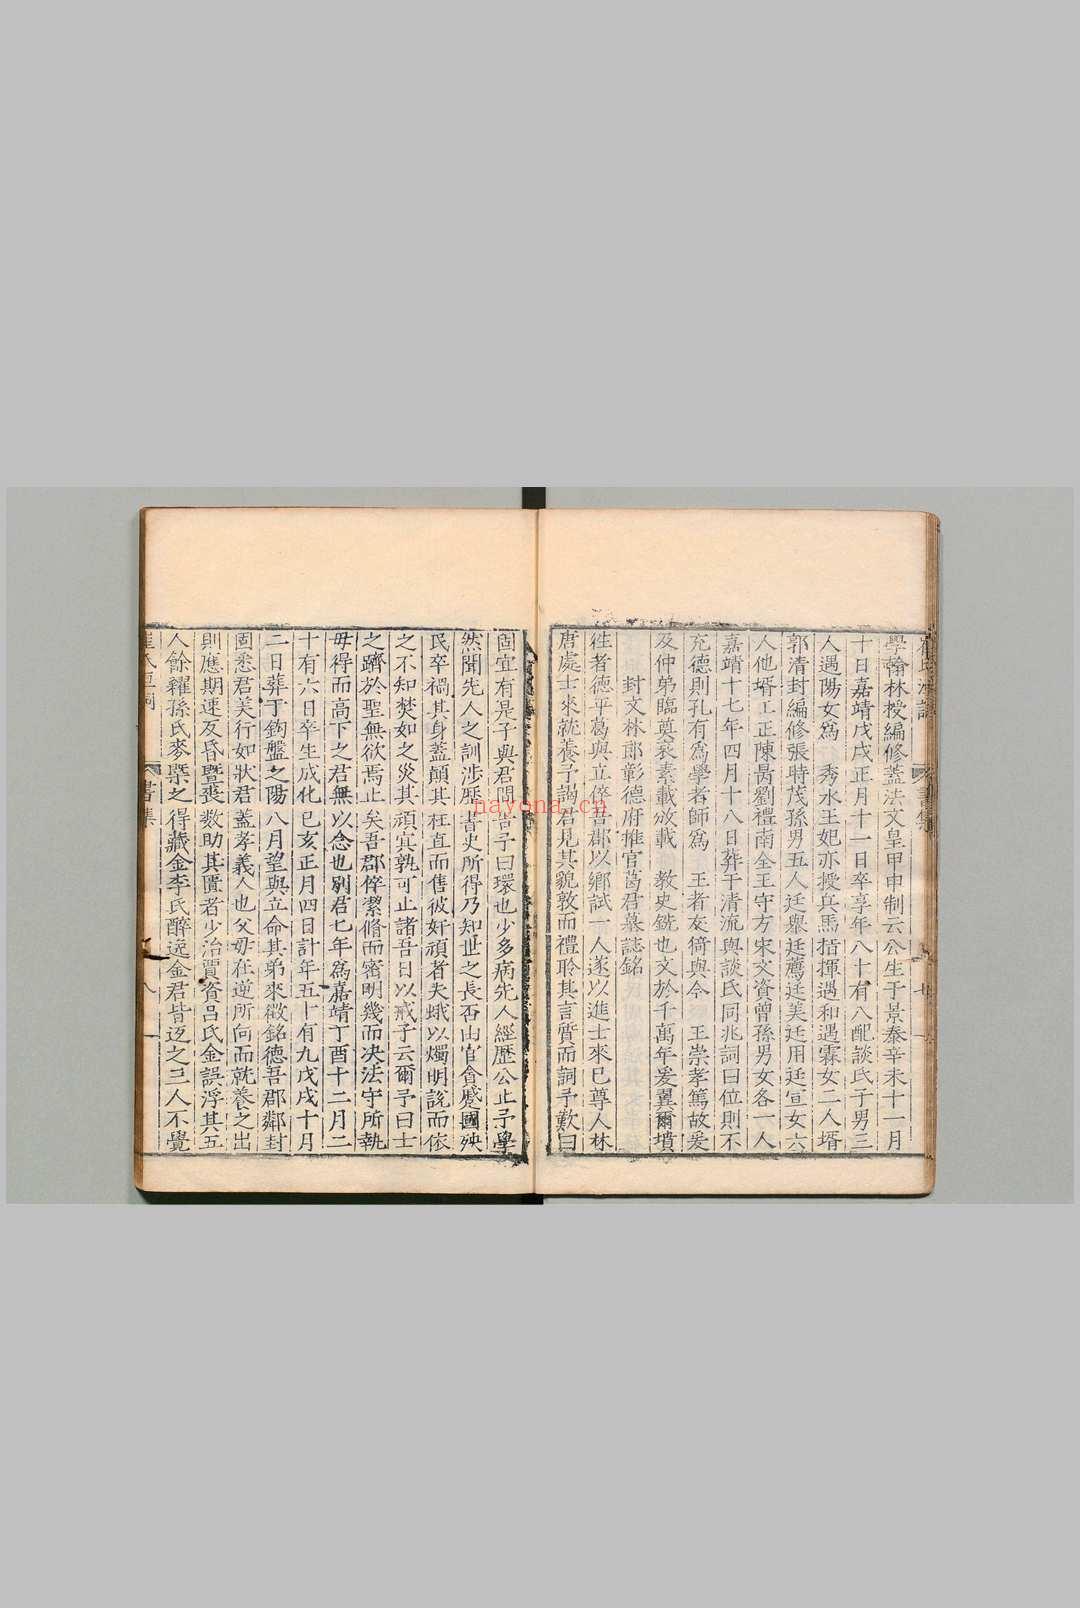 學翰林授編修蓋法文皇甲申制云公生于景泰辛未十一月
十日嘉靖戊戌正月十一日卒享年八十有八配談氏子男三
人遇陽女爲 秀水王妃亦授兵馬指揮遇和遇霖女二人壻
郭清封編修張時茂孫男五人廷舉廷薦廷美廷用廷宣女六
人他壻工正陳昺劉禮南全王守方宋文資曾孫男女各一人
嘉靖十七年四月十八日葬于清流與談氏同兆詞曰位則不
充德則孔有爲學者師爲 王者友猗與今 王崇孝篤故爰
及仲弟臨奠衰素載攽載 教史銑也文於千萬年爰翼爾墳
封文林郎彰德府推官葛君墓誌銘
徃者德平葛與立倅吾郡以鄉試一人遂以進士來已尊人林
唐處士來就養予謁君見其貌敦而禮聆其言質而詞予歎曰
固宜有是子與君間言予曰環也少多病先人經歷公止予學
然聞先人之訓涉歷書史所得乃知世之長否由官貪慼國殃
民卒禍其身蓋顛其枉直而售彼奸頑者夫蛾以燭明說而依
之不知焚如之災其頑冥孰可止諸吾日以戒子云爾予曰士
之躋於聖無欲焉止矣吾郡倅潔脩而密明幾而决法守所執
毋得而高下之君無以念也别君七年爲嘉靖丁酉十二月二
十有六日卒生成化己亥正月四日計年五十有九戊戌十月
二日葬于鈎盤之陽八月望與立命其弟來徵銘德吾郡鄰封
固悉君美行如狀君蓋孝義人也父毋在逆所向而就養之出
則應期速反昏曁喪数助其匱者少治賈資呂氏金誤浮其五
人餘糴孫氏麥槩之得藏金李氏醉遺金君皆返之三人不覺
崔氏洹詞
書集
八